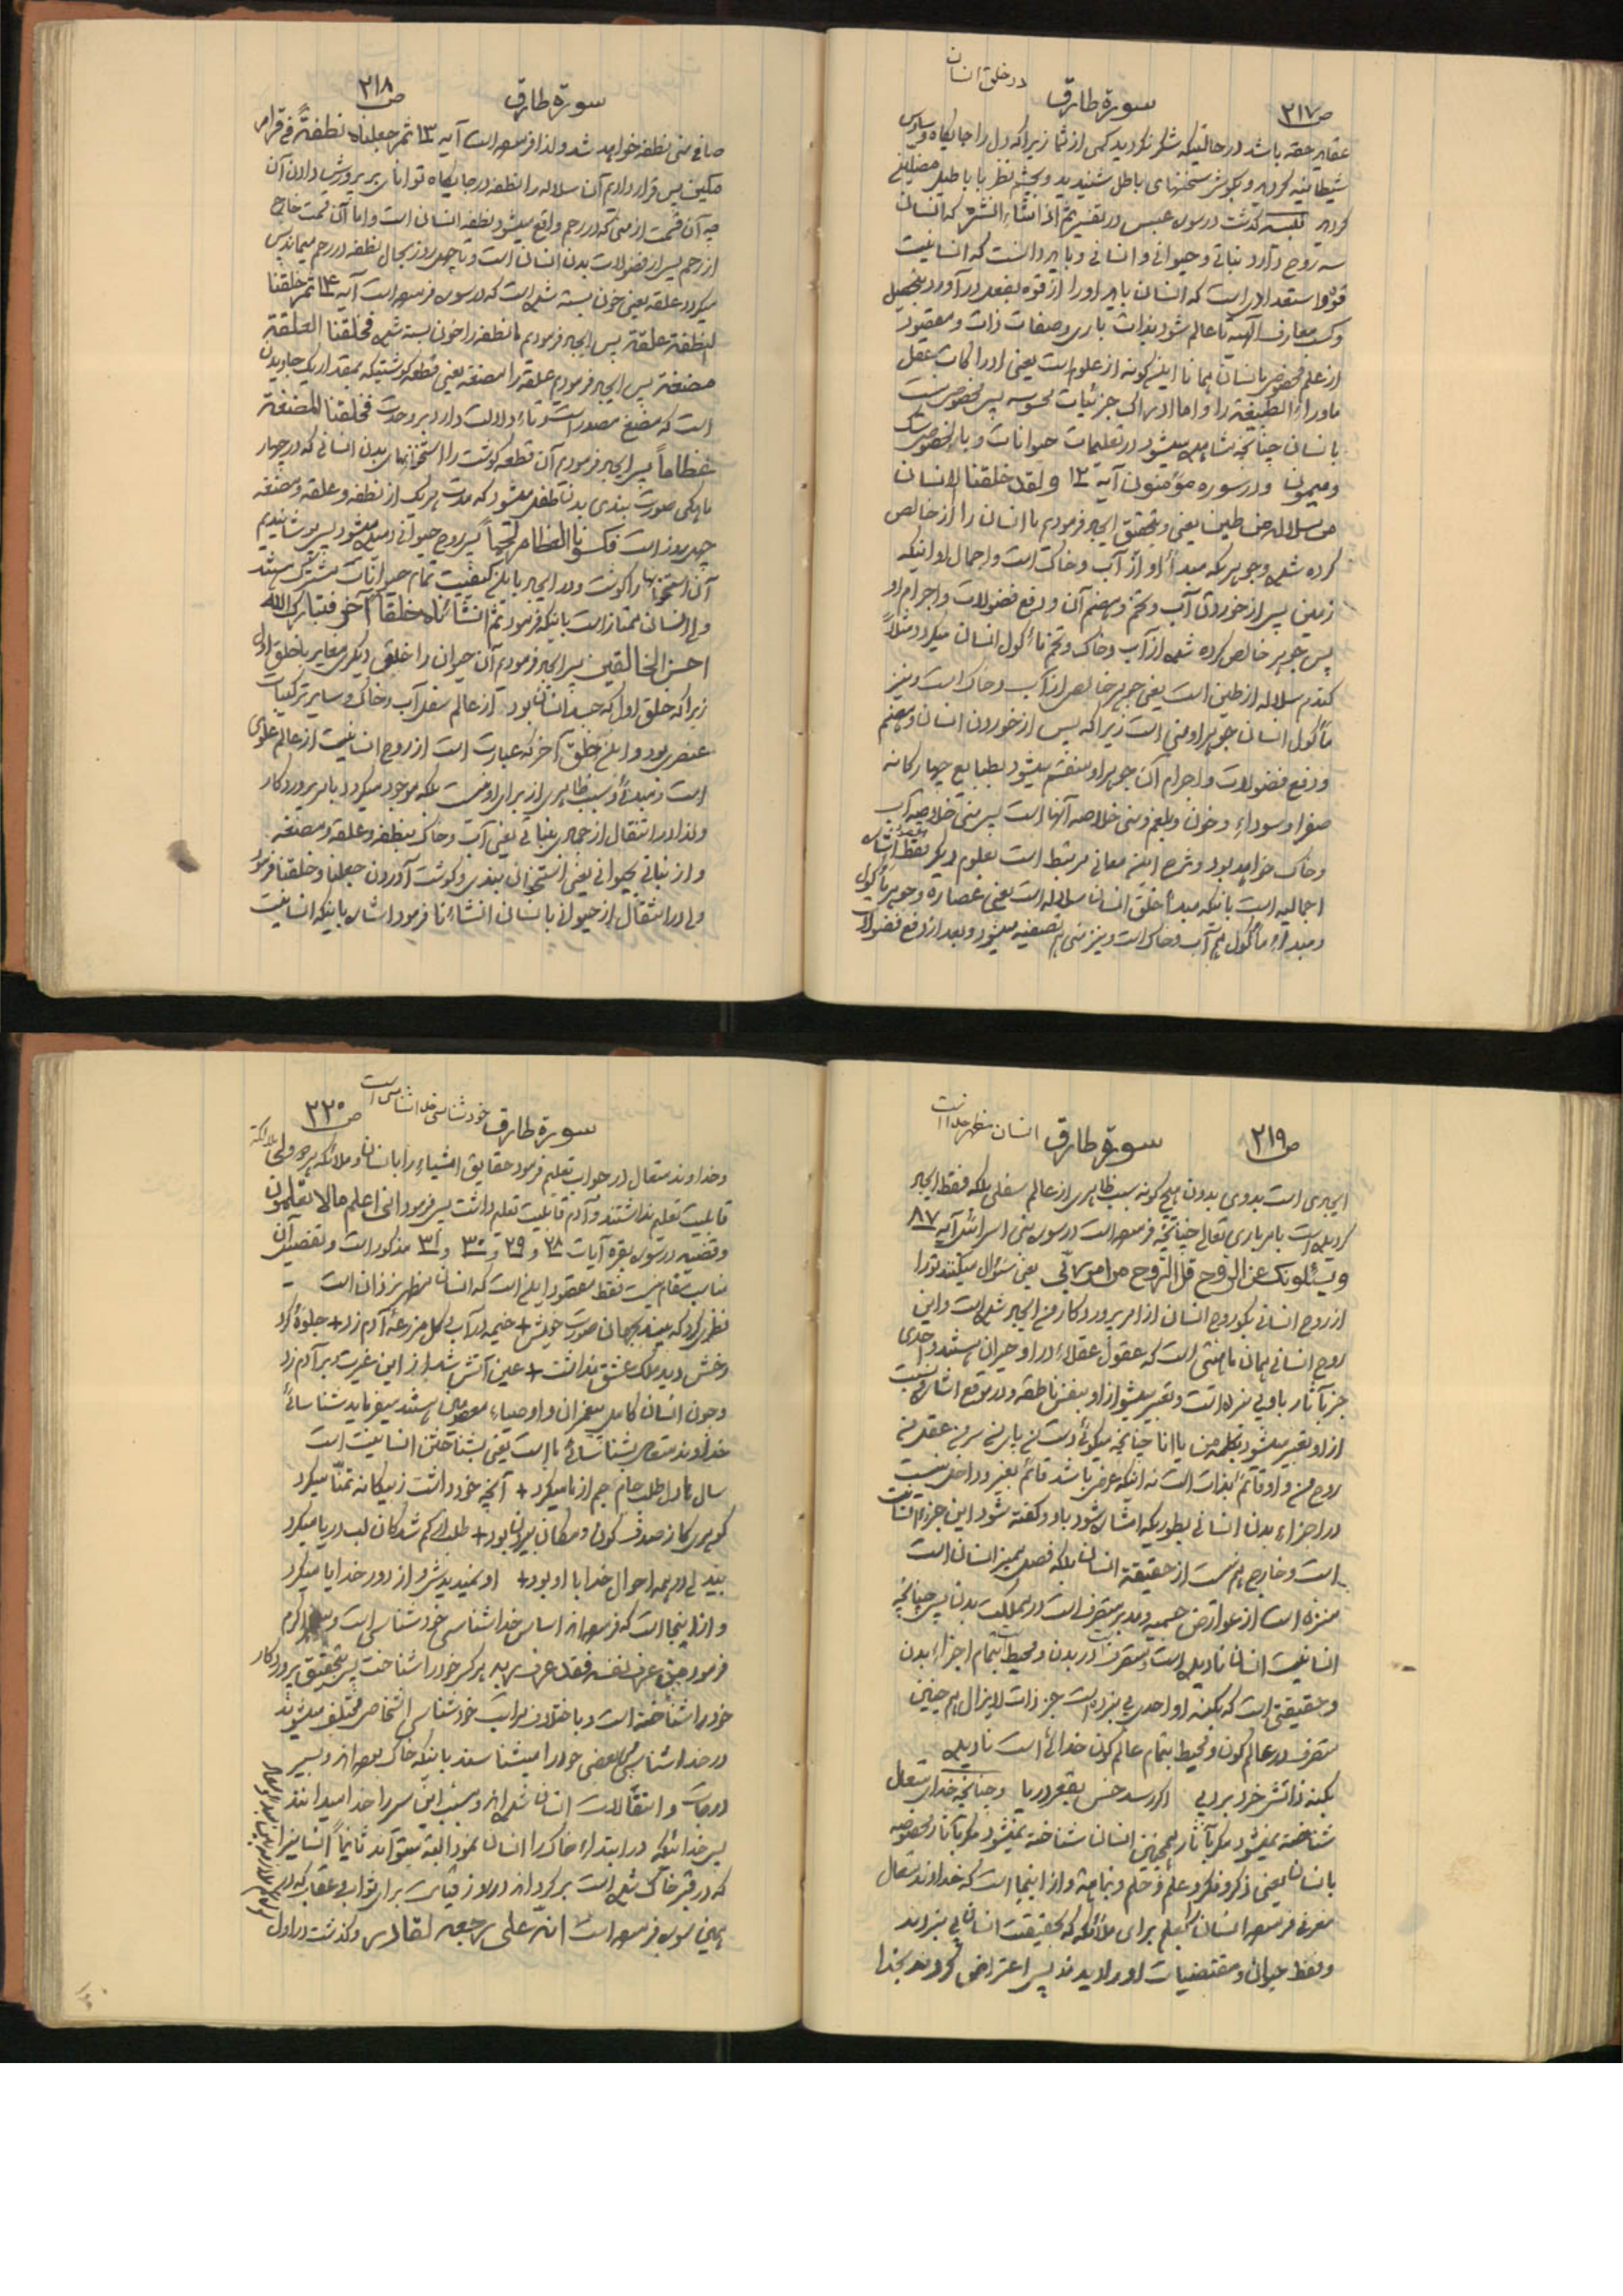 در خلق انسان
ص ۲۱۷ سورة طارق
عقاید حقه باشد در حالتیکه شکر نکردید کمی از شما زیرا که دل را جایگاه وساوس
شیطانیه کردید و بگوش سخنهای باطل شنیدید و بچشم نظر با باطیل
کردید گذشت در سوره عبس در تفسیر ثم اذا شاء انشره که انسان
سه روح دارد نباتی و حیوانی و انسانی و باید دانست که انسانیت
قوه و استعدادی است که انسان باید او را از قوه بفعل در آورد بتحصیل
و کسب معارف الهیه تا عالم شود بذات باری و صفات ذات و مقصود
از علم مخصوص بانسان همانا اینگونه از علوم است یعنی ادراکات عقل
ماوراء الطبیعة را و اما ادراک جزئیات محسوسه پس مخصوص نیست
بانسان چنانچه مشاهده میشود در تعلیمات حیوانات و بالخصوص سگ
و میمون و در سوره مؤمنون آیه ۱۲ و لقد خلقنا الانسان
من سلالة من طین یعنی و بتحقیق ایجاد فرمودیم ما انسان را از خالص
کرده شده و جوهریکه مبدأ او از آب و خاک است و اجمال او اینکه
زمین پس از خوردن آب و تخم و هضم آن و دفع فضولات و اجرام او
پس جوهر خالص کرده شده از آب و خاک و تخم مأکول انسان میگردد مثلاً
گندم سلاله از طین است یعنی جوهر خالص از آب و خاک است و نیز
مأکول انسان جوهر او منی است زیرا که پس از خوردن انسان و هضم
و دفع فضولات و اجرام آن جوهر او منقسم میشود بطبایع چهارگانه
صفرا و سوداء و خون و بلغم و منی خلاصه آنها است پس منی خلاصه آب
و خاک خواهد بود و شرح این معانی مرتبط است بعلوم دیگر فقط اشاره
اجمالیه است بانکه مبدأ خلق انسان سلاله است یعنی عصاره و جوهر مأکول
و مبدأ مأکول هم آب و خاک است و نیز منی هم تصفیه میشود و بعد از دفع فضولات
سورة طارق ص ۲۱۸
صافی منی نطفه خواهد شد و لذا فرموده است آیه ۱۳ ثم جعلناه نطفة فی قرار
مکین پس قرار دادیم آن سلاله را نطفه در جایگاه توانای بر پرورش دادن آن
چه آن قسمت از منی که در رحم واقع میشود نطفه انسان است و اما آن قسمت خارج
از رحم پس از فضولات بدن انسان است و تا چهل روز بحال نطفه در رحم میماند پس
میگردد علقه یعنی خون بسته شده است که در سوره فرموده است آیه ۱۴ ثم خلقنا
النطفة علقة پس ایجاد فرمودیم ما نطفه را خون بسته شده فخلقنا العلقة
مضغة پس ایجاد فرمودیم علقه را مضغه یعنی قطعه گوشتیکه بمقدار یک جاویدن
است که مضغ مصدر است و تاء دلالت دارد بر وحدت فخلقنا المضغة
عظاماً پس ایجاد فرمودیم آن قطعه گوشت را استخوانهای بدن انسانی که در چهار
ماهگی صورت بندی بدن طفل میشود که مدت هر یک از نطفه و علقه و مضغه
چهل روز است فکسونا العظام لحماً پس روح حیوانی دمیده میشود پس پوشانیدیم
آن استخوانها را گوشت و در ایجاد باین کیفیت تمام حیوانات مشترک هستند
ولی انسان ممتاز است بانیکه فرمود ثم انشأناه خلقاً آخر فتبارک الله
احسن الخالقین پس ایجاد فرمودیم آن حیوان را خلقی دیگری مغایر با خلق اول
زیرا که خلق اول که جسد انسان بود از عالم سفل آب و خاک و سایر ترکیبات
عنصری بود و این خلق آخر که عبارت است از روح انسانیت از عالم علوی
است و مبدأ و سبب ظاهری از برای او نیست بلکه موجود میگردد بامر پروردگار
و لذا در انتقال از جمادی بنباتی یعنی آب و خاک بنطفه و علقه و مضغه
و از نباتی بحیوانی یعنی استخوان بندی و گوشت آوردن جعلنا و خلقنا فرمود
ولی در انتقال از حیوانی بانسان انشأنا فرمود اشاره باینکه انسانیت
انسان مظهر خدا است
ص ۲۱۹ سورة طارق
ایجادی است بدوی بدون هیچگونه سبب ظاهری از عالم سفلی بلکه فقط ایجاد
گردیده است بامر باری تعالی چنانچه فرموده است در سوره بنی اسرائیل آیه ۸۷
و یسئلونک عن الروح قل الروح من امر ربّی یعنی سئوال میکنند تو را
از روح انسانی بگو روح انسان از امر پروردگار من ایجاد شده است و این
روح انسانی همان است که عقول عقلاء در او حیران هستند و احدی
جز بآثار باو پی نبرده است و تعبیر میشود از او بنفس ناطقه و در موقع اشاره
از او تعبیر میشود بکلمه من یا انا چنانچه میگوئی دست من پای من سر من عقل من
روح من و او قائم بذات است نه اینکه عرض باشد قائم بغیر و داخل نیست
در اجزاء بدن انسانی بطوریکه اشاره شود باو و گفته شود این جزء انسانیت
است و خارج هم نیست از حقیقة انسان بلکه فصل ممیز انسان است
منزه است از عوارض جسمیه و مدبر متصرف است در مملکت بدن پس چنانچه
انسانیت انسان نادیده است و متصرف در بدن و محیط بتمام اجزاء بدن
و حقیقتی است که بکنه او احدی پی نبرده است جز ذات لایزال هم چنین
متصرف در عالم کون و محیط بتمام عالم کون خدائی است نادیده
بکنه ذاتش خرد برد پی اگر رسد خس بقعر دریا و چنانچه خدای متعال
شناخته نمیشود مگر بآثار همچنین انسان شناخته نمیشود مگر بآثار مخصوصه
بانسان یعنی ذکر و فکر و علم و حلم و نباهة و از اینجا است که خداوند متعال
معرفی فرموده انسان را بعلم برای ملائکه که بحقیقت انسان پی نبردند
و فقط حیوان و مقتضیات او را دیدند پس اعتراض کردند بخدا
خود شناسی خدا شناسی است
سورة طارق ص ۲۲۰
و خداوند متعال در جواب تعلیم فرمود حقایق اشیاء را بانسان و ملائکه
قابلیت تعلیم نداشتند و آدم قابلیت تعلیم داشت پس فرمود انی اعلم ما لا تعلمون
و قضیه در سوره بقره آیات ۲۸ و ۲۹ و ۳۰ و ۳۱ مذکور است و تفصیل آن
مناسب مقام نیست فقط مقصود این است که انسان مظهر یزدان است
نظری کرد که بیند بجهان صورت خویش + خیمه در آب و گل مزرعه آدم زد + جلوه کرد
رخش دید ملک عشق نداشت + عین آتش شد از این غیرت و بر آدم زد
و چون انسان کامل پیغمبران و اوصیاء معصومین هستند میفرماید شناسائی
خداوند متعال بشناسائی ما است یعنی بشناختن انسانیت است
سال ها دل طلب جام جم از ما میکرد + آنچه خود داشت ز بیگانه تمنّا میکرد
گوهری کز صدف کون و مکان بیرون بود + طلب از گم شدگان لب دریا میکرد
بیدلی در همه احوال خدا با او بود + او نمیدیدش و از دور خدایا میکرد
و از اینجا است که فرموده اند اساس خدا شناسی خود شناسی است و اکرم
فرمود من عرف نفسه فقد عرف ربه هر کس خود را شناخت پس بتحقیق پروردگار
خود را شناخته است و باختلاف مراتب خود شناسی اشخاص مختلف میشوند
در خدا شناسی بعضی خود را میشناسند باینکه خاک بوده اند و بسیر
درجات و انتقالات انسان شده اند و مسبب این سیر را خدا میدانند
پس خدائیکه در ابتداء خاک را انسان نمود البته میتواند ثانیاً انسانرا
که در قبر خاک شده است برگرداند در روز قیامت برای ثواب و عقاب که در
همین سوره فرموده است انّه علی رجعه لقادر و گذشت در اول